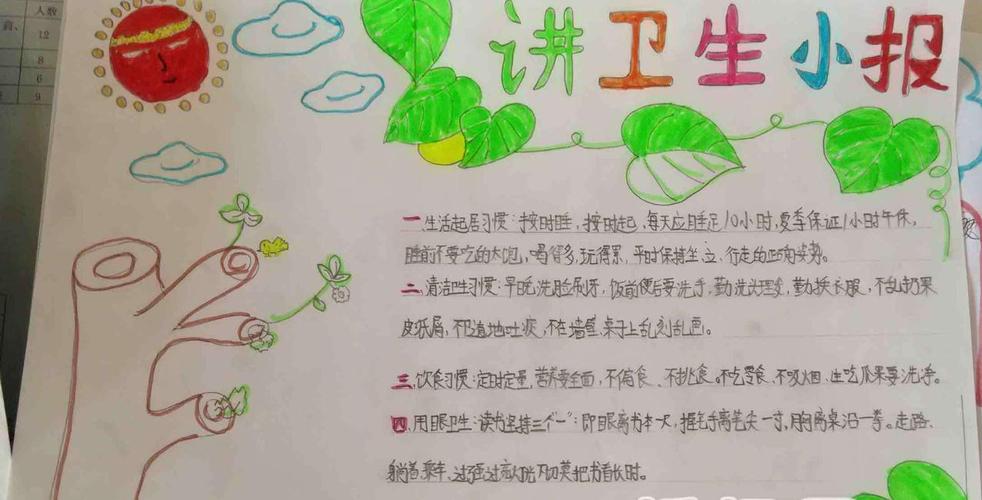 人数
12
8
6
9
讲卫生小报
一.生活起居习惯:按时睡,按时起,每天应睡足10小时,夏季保证1小时午休,
睡前不要吃的太饱,喝得多,玩得累,平时保持坐、立、行走的正确姿势。
二.清洁卫生习惯:早晚洗脸刷牙,饭前便后要洗手,勤洗头理发,勤换衣服,不乱扔果
皮纸屑,不随地吐痰,不在墙壁桌子上乱刻乱画。
三.饮食习惯:定时定量,营养要全面,不偏食、不挑食。不吃零食,不吸烟、生吃瓜果要洗净。
四.用眼卫生:读书坚持三个"一":即眼离书本一尺,握笔手离笔尖一寸,胸离桌沿一拳。走路、
躺着、乘车、过强过弱光切莫把书看长时。